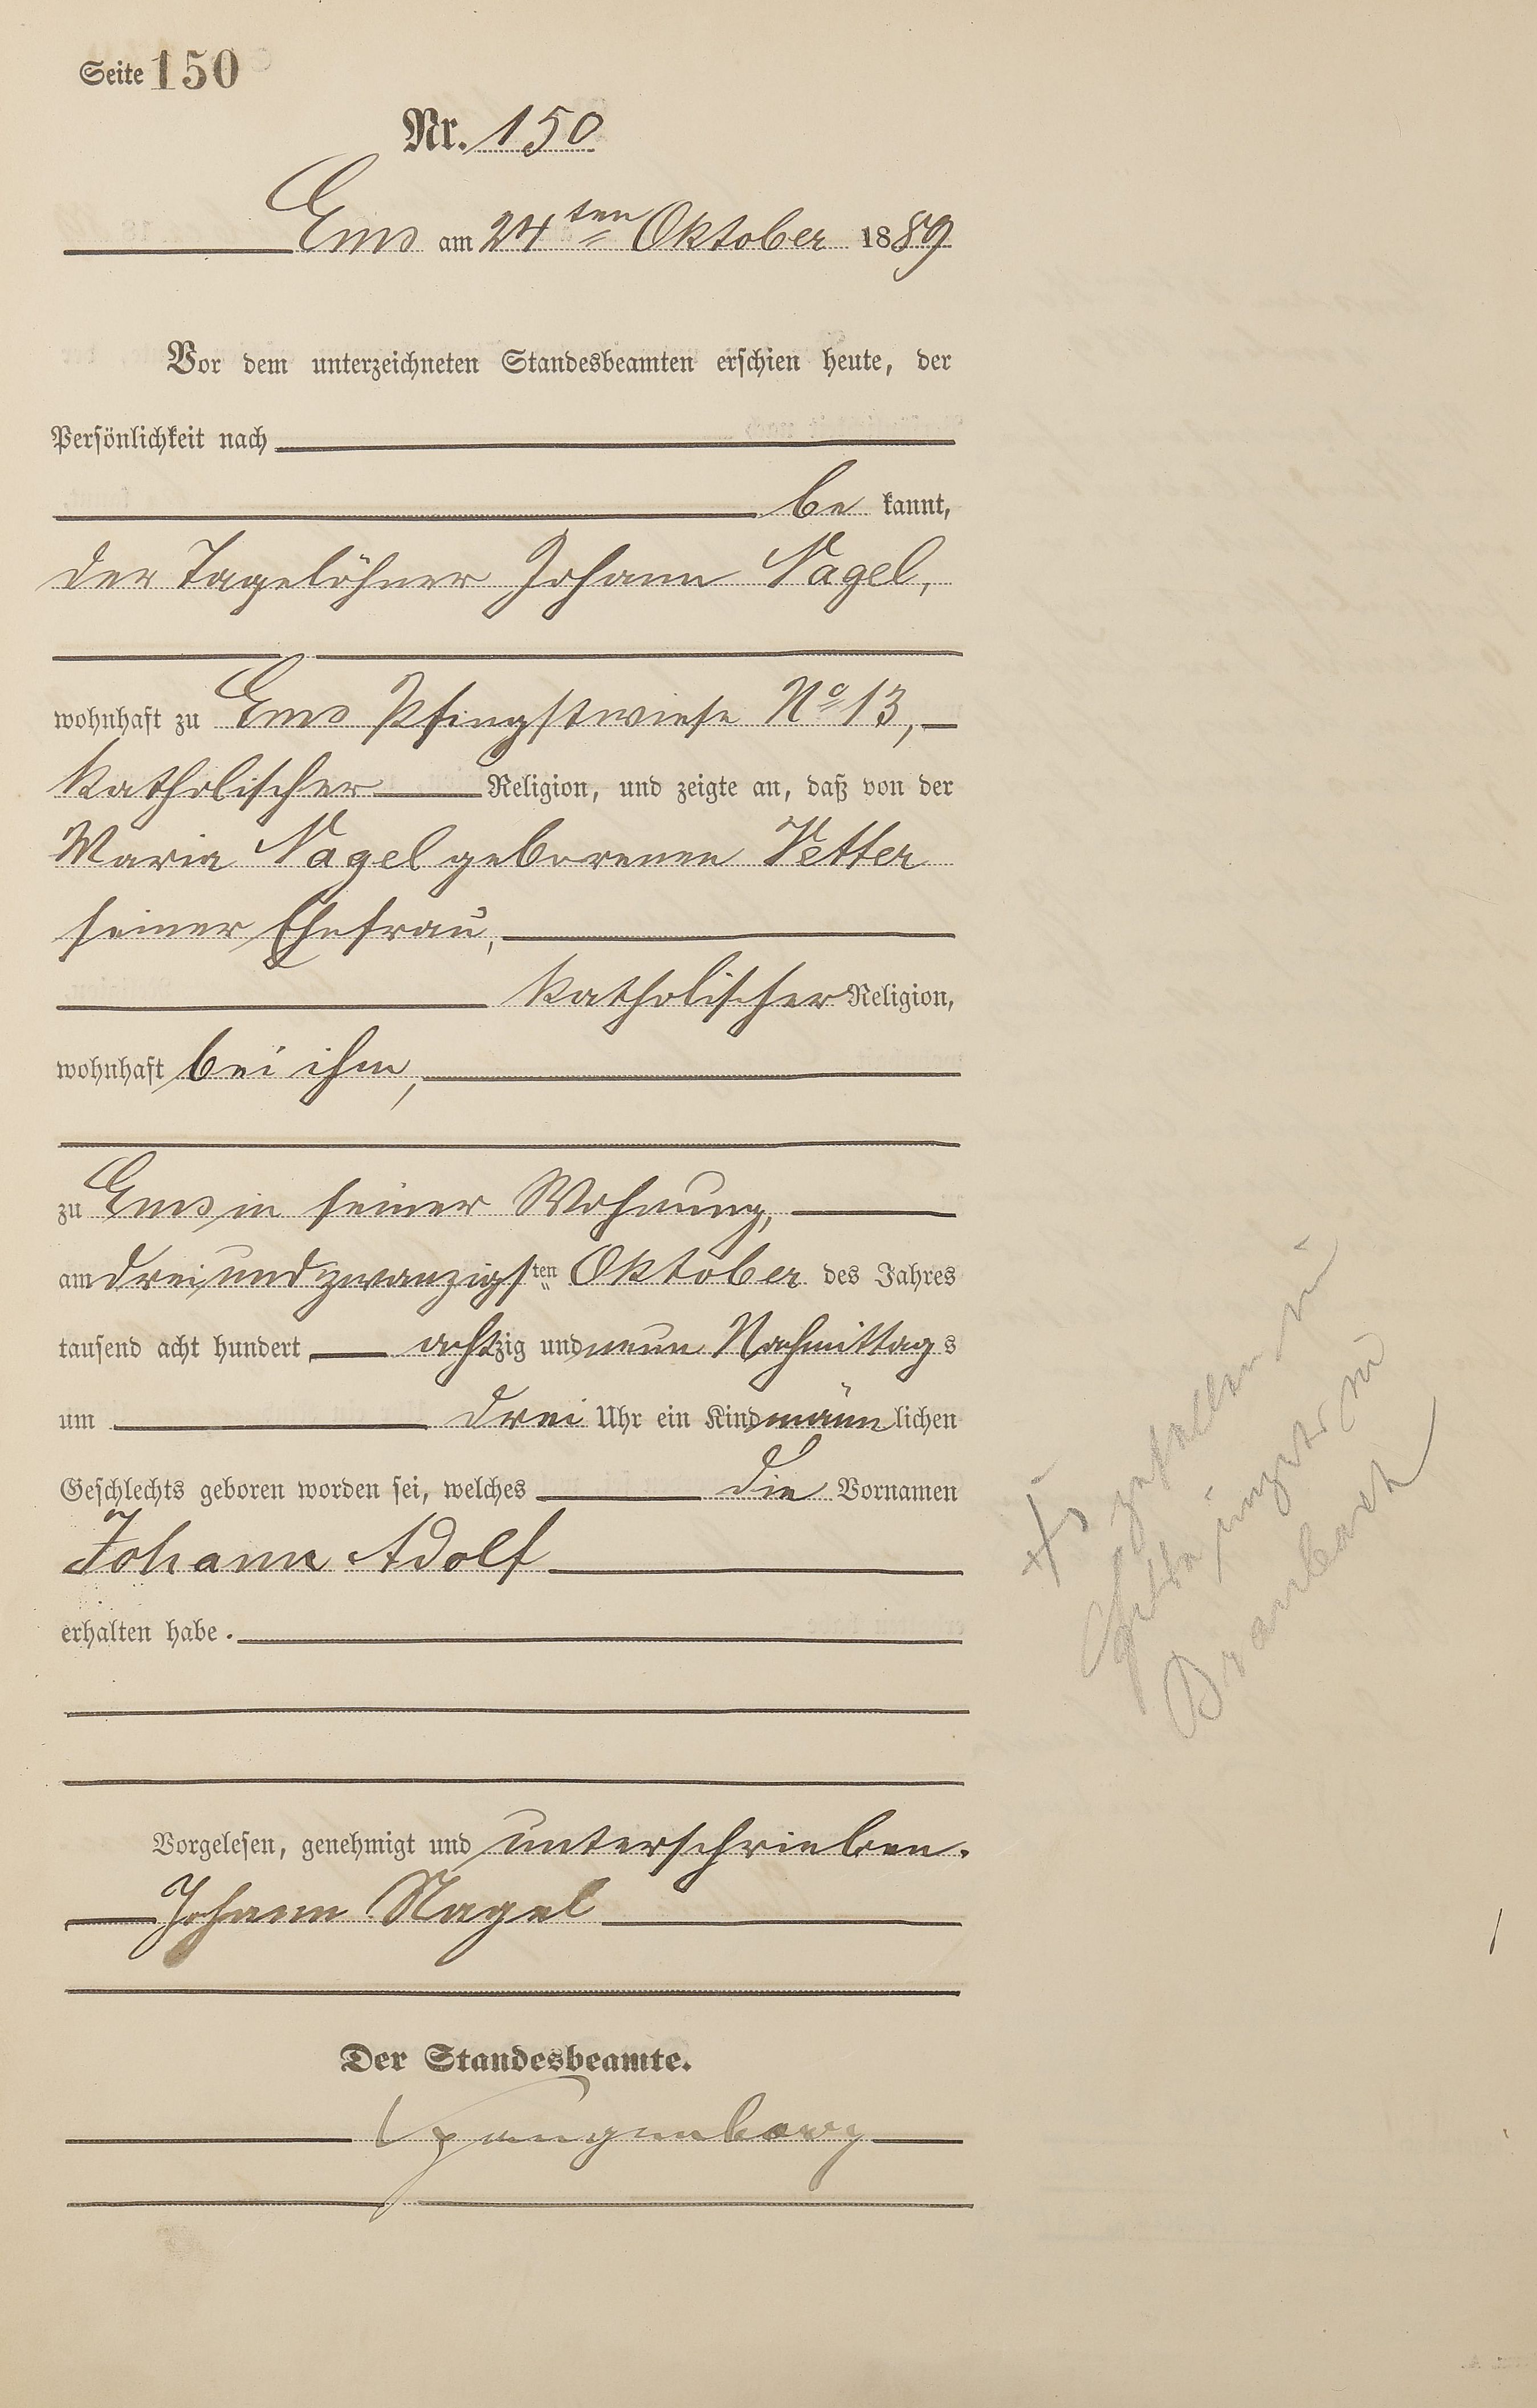 Seite 150
Nr. 150
Ems am 24ten Oktober 1889
Vor dem unterzeichneten Standesbeamten erschien heute, der
Persönlichkeit nach
be kannt,
der Tagelöhner Johann Nagel,
wohnhaft zu Ems Pfingstwiese No 13,
katholischer Religion, und zeigte an, daß von der
Maria Nagel geborenen Vetter
seiner Ehefrau,
katholischer Religion,
wohnhaft bei ihm,
zu Ems in seiner Wohnung,
am dreiundzwanzigsten Oktober des Jahres
tausend acht hundert achtzig und neun Nachmittags
um drei Uhr ein Kind männlichen
Geschlechts geboren worden sei, welches die Vornamen
Johann Adolf
erhalten habe.
Vorgelesen, genehmigt und unterschrieben.
Johann Nagel
Der Standesbeamte.
Spangenberg
gefallen
Braubach